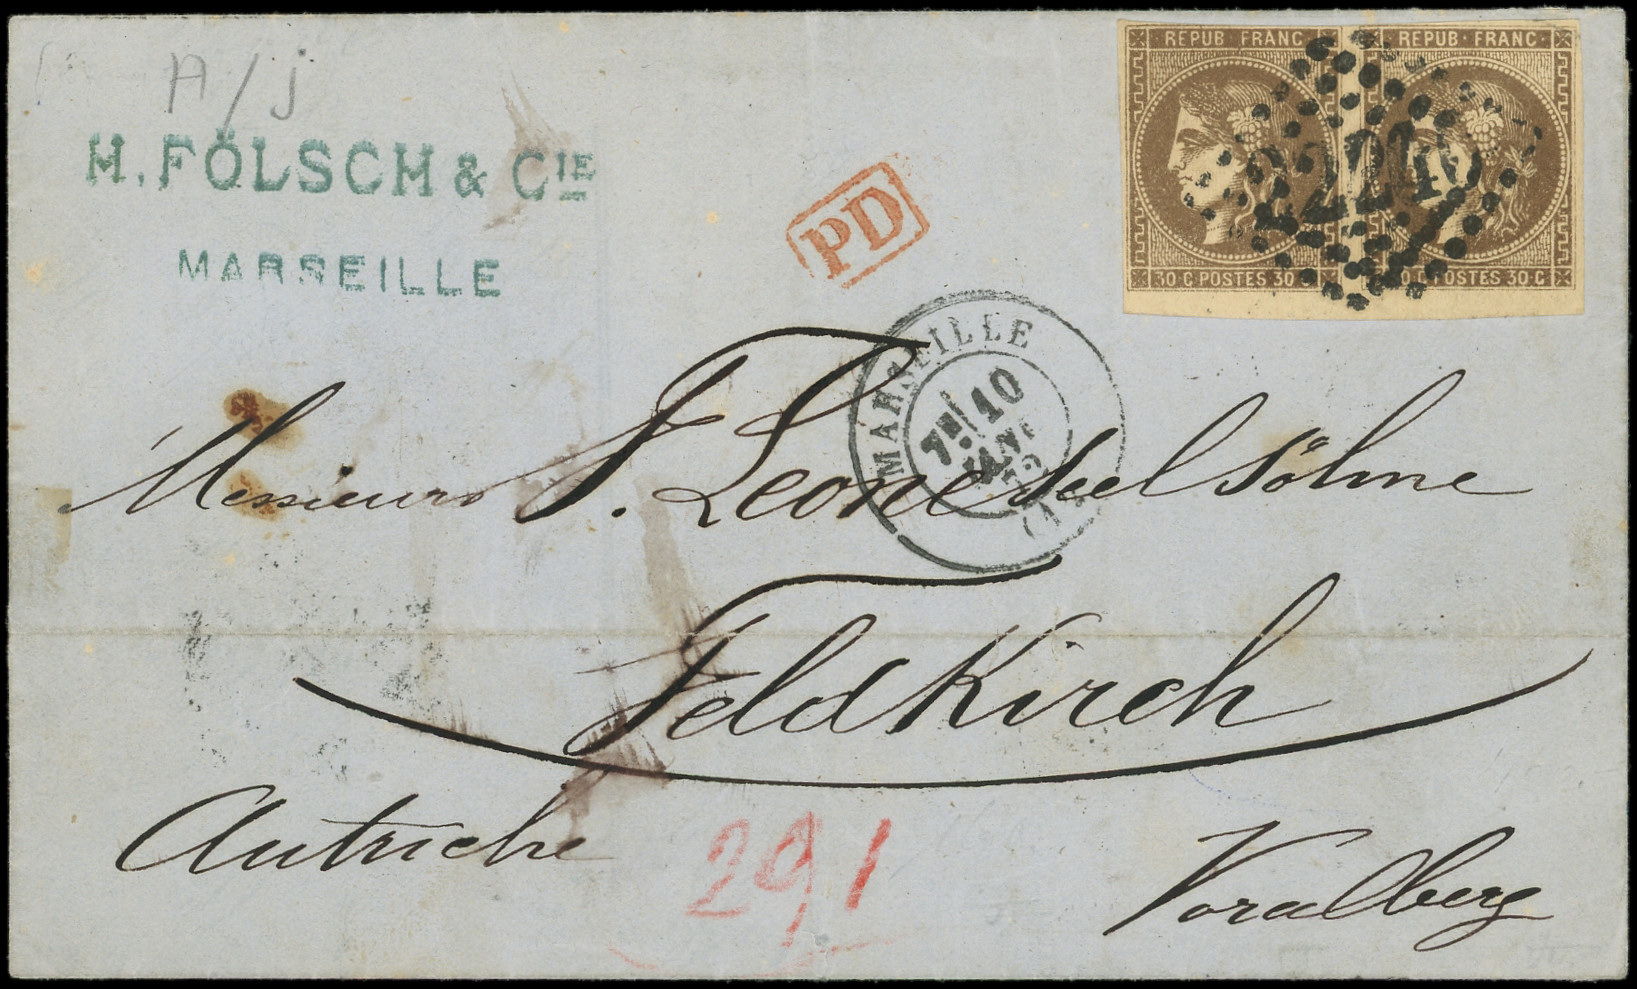 A/j
H. FÖLSCH & CIE
MARSEILLE
PD
REPUB·FRANC REPUB·FRANC
2240
30·C·POSTES 30 0·C·POSTES 30·C
MARSEILLE
7E 10
JANV
72
(12)
Messieurs F. Leone Seel Söhne
Feldkirch
Autriche
29/1
Voralberg